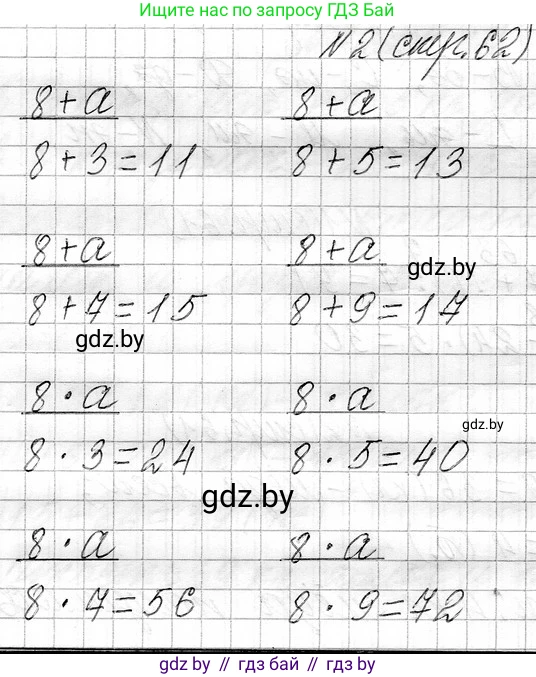 Ищите нас по запросу ГДЗ Бай
№2 (стр. 62)
8 + a 8 + a
8 + 3 = 11 8 + 5 = 13
8 + a 8 + a
gdz.by
8 + 7 = 15 8 + 9 = 17
gdz.by
8 · a 8 · a
gdz.by
8 · 3 = 24 8 · 5 = 40
gdz.by
8 · a 8 · a
8 · 7 = 56 8 · 9 = 72
gdz.by // гдз бай // gdz.by